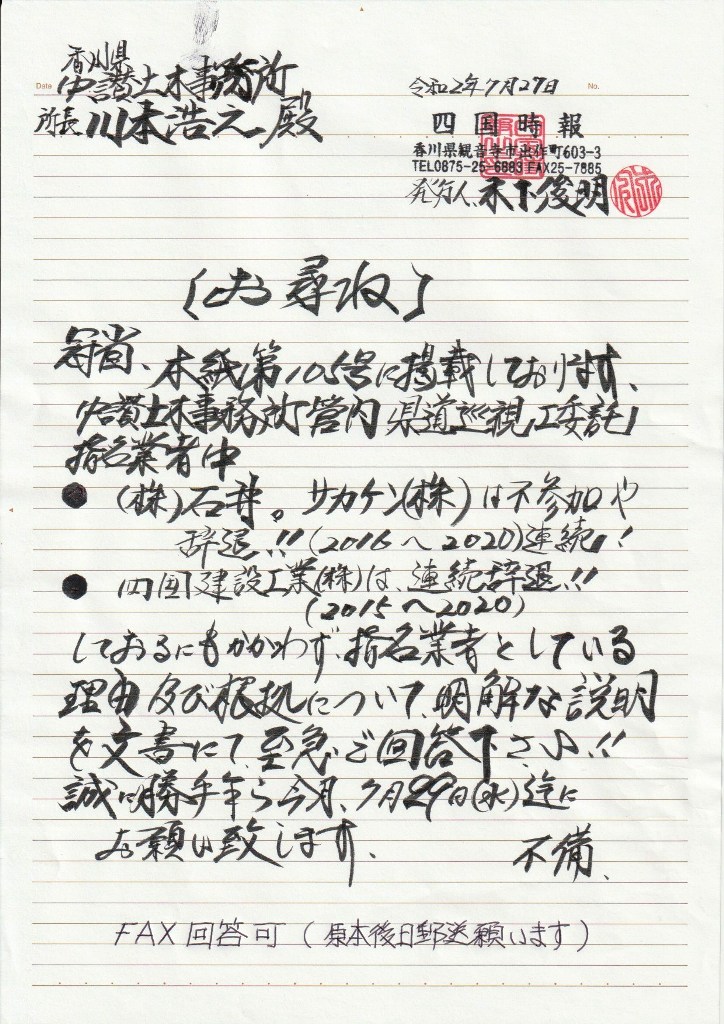 香川県
中讃土木事務所
所長 川本浩之殿
Date
No.
令和2年7月27日
四国時報
香川県観音寺市出作町603-3
TEL0875-25-6883 FAX25-7885
発行人 木下俊明
〔お尋ね〕
冠省、本紙第105号に掲載しております、
中讃土木事務所管内県道巡視工委託」
指名業者中
● (株)石井。サカケン(株)は不参加や
辞退!!(2016へ2020)連続!!
● 四国建設工業(株)は、連続辞退!!
(2015へ2020)
しておるにもかかわず、指名業者としている
理由及び根拠について、明解な説明
を文書にて、至急ご回答下さい!!
誠に勝手乍ら今月、7月29日(水)迄に
お願い致します。
不備、
FAX回答可(原本後日郵送願います)